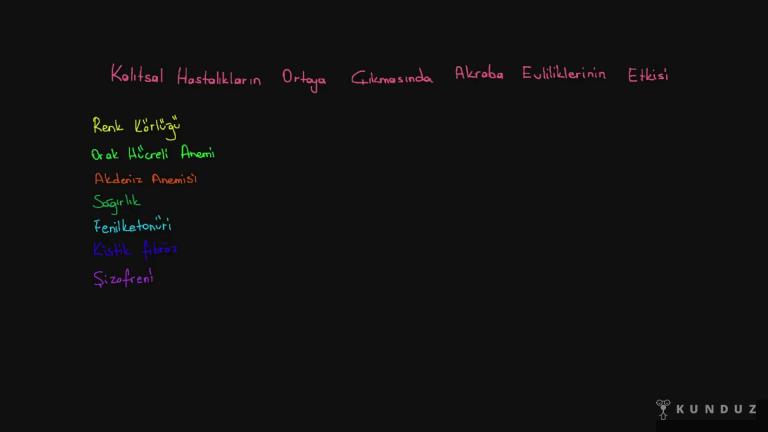 Kalıtsal Hastalıkların Ortaya Çıkmasında Akraba Evliliklerinin Etkisi
Renk Körlüğü
Orak Hücreli Anemi
Akdeniz Anemisi
Sağırlık
Fenilketonüri
Kistik fibroz
Şizofreni
KUNDUZ